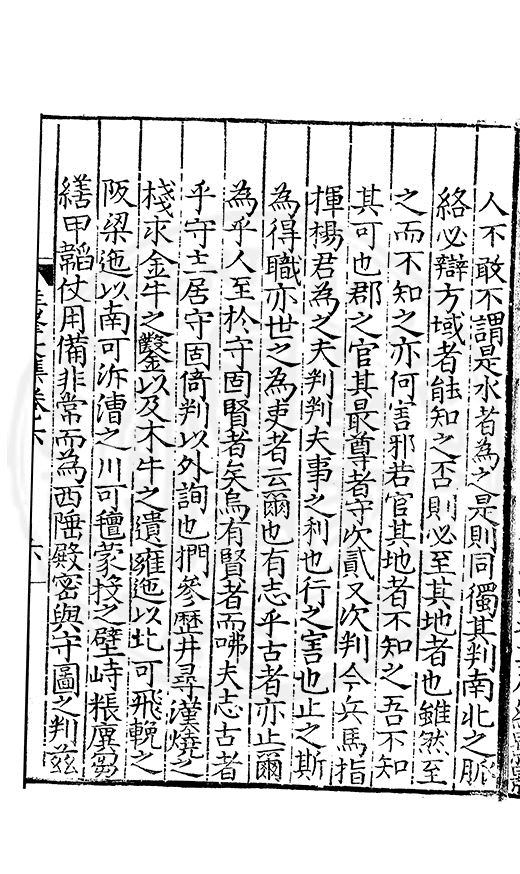 人不敢不謂是水者為之是則同獨其判南北之脈
絡必辯方域者能知之否則必至其地者也雖然至
之而不知之亦何害邪若官其地者不知之吾不知
其可也郡之官其最尊者守次貳又次判今兵馬指
揮楊君為之夫判判夫事之利也行之害也止之斯
為得職亦世之為吏者云爾也有志乎古者亦止爾
為乎人至扵守固賢者矣烏有賢者而咈夫志古者
乎守土居守固倚判以外詢也捫參歷井尋漢燒之
棧求金牛之鑿以及木牛之遺雍迤以北可飛輓之
阪梁迤以南可泝漕之川可氊蒙投之壁峙粻廪芻
繕甲韜仗用備非常而為西陲殿密與守圖之判茲
集卷六
六